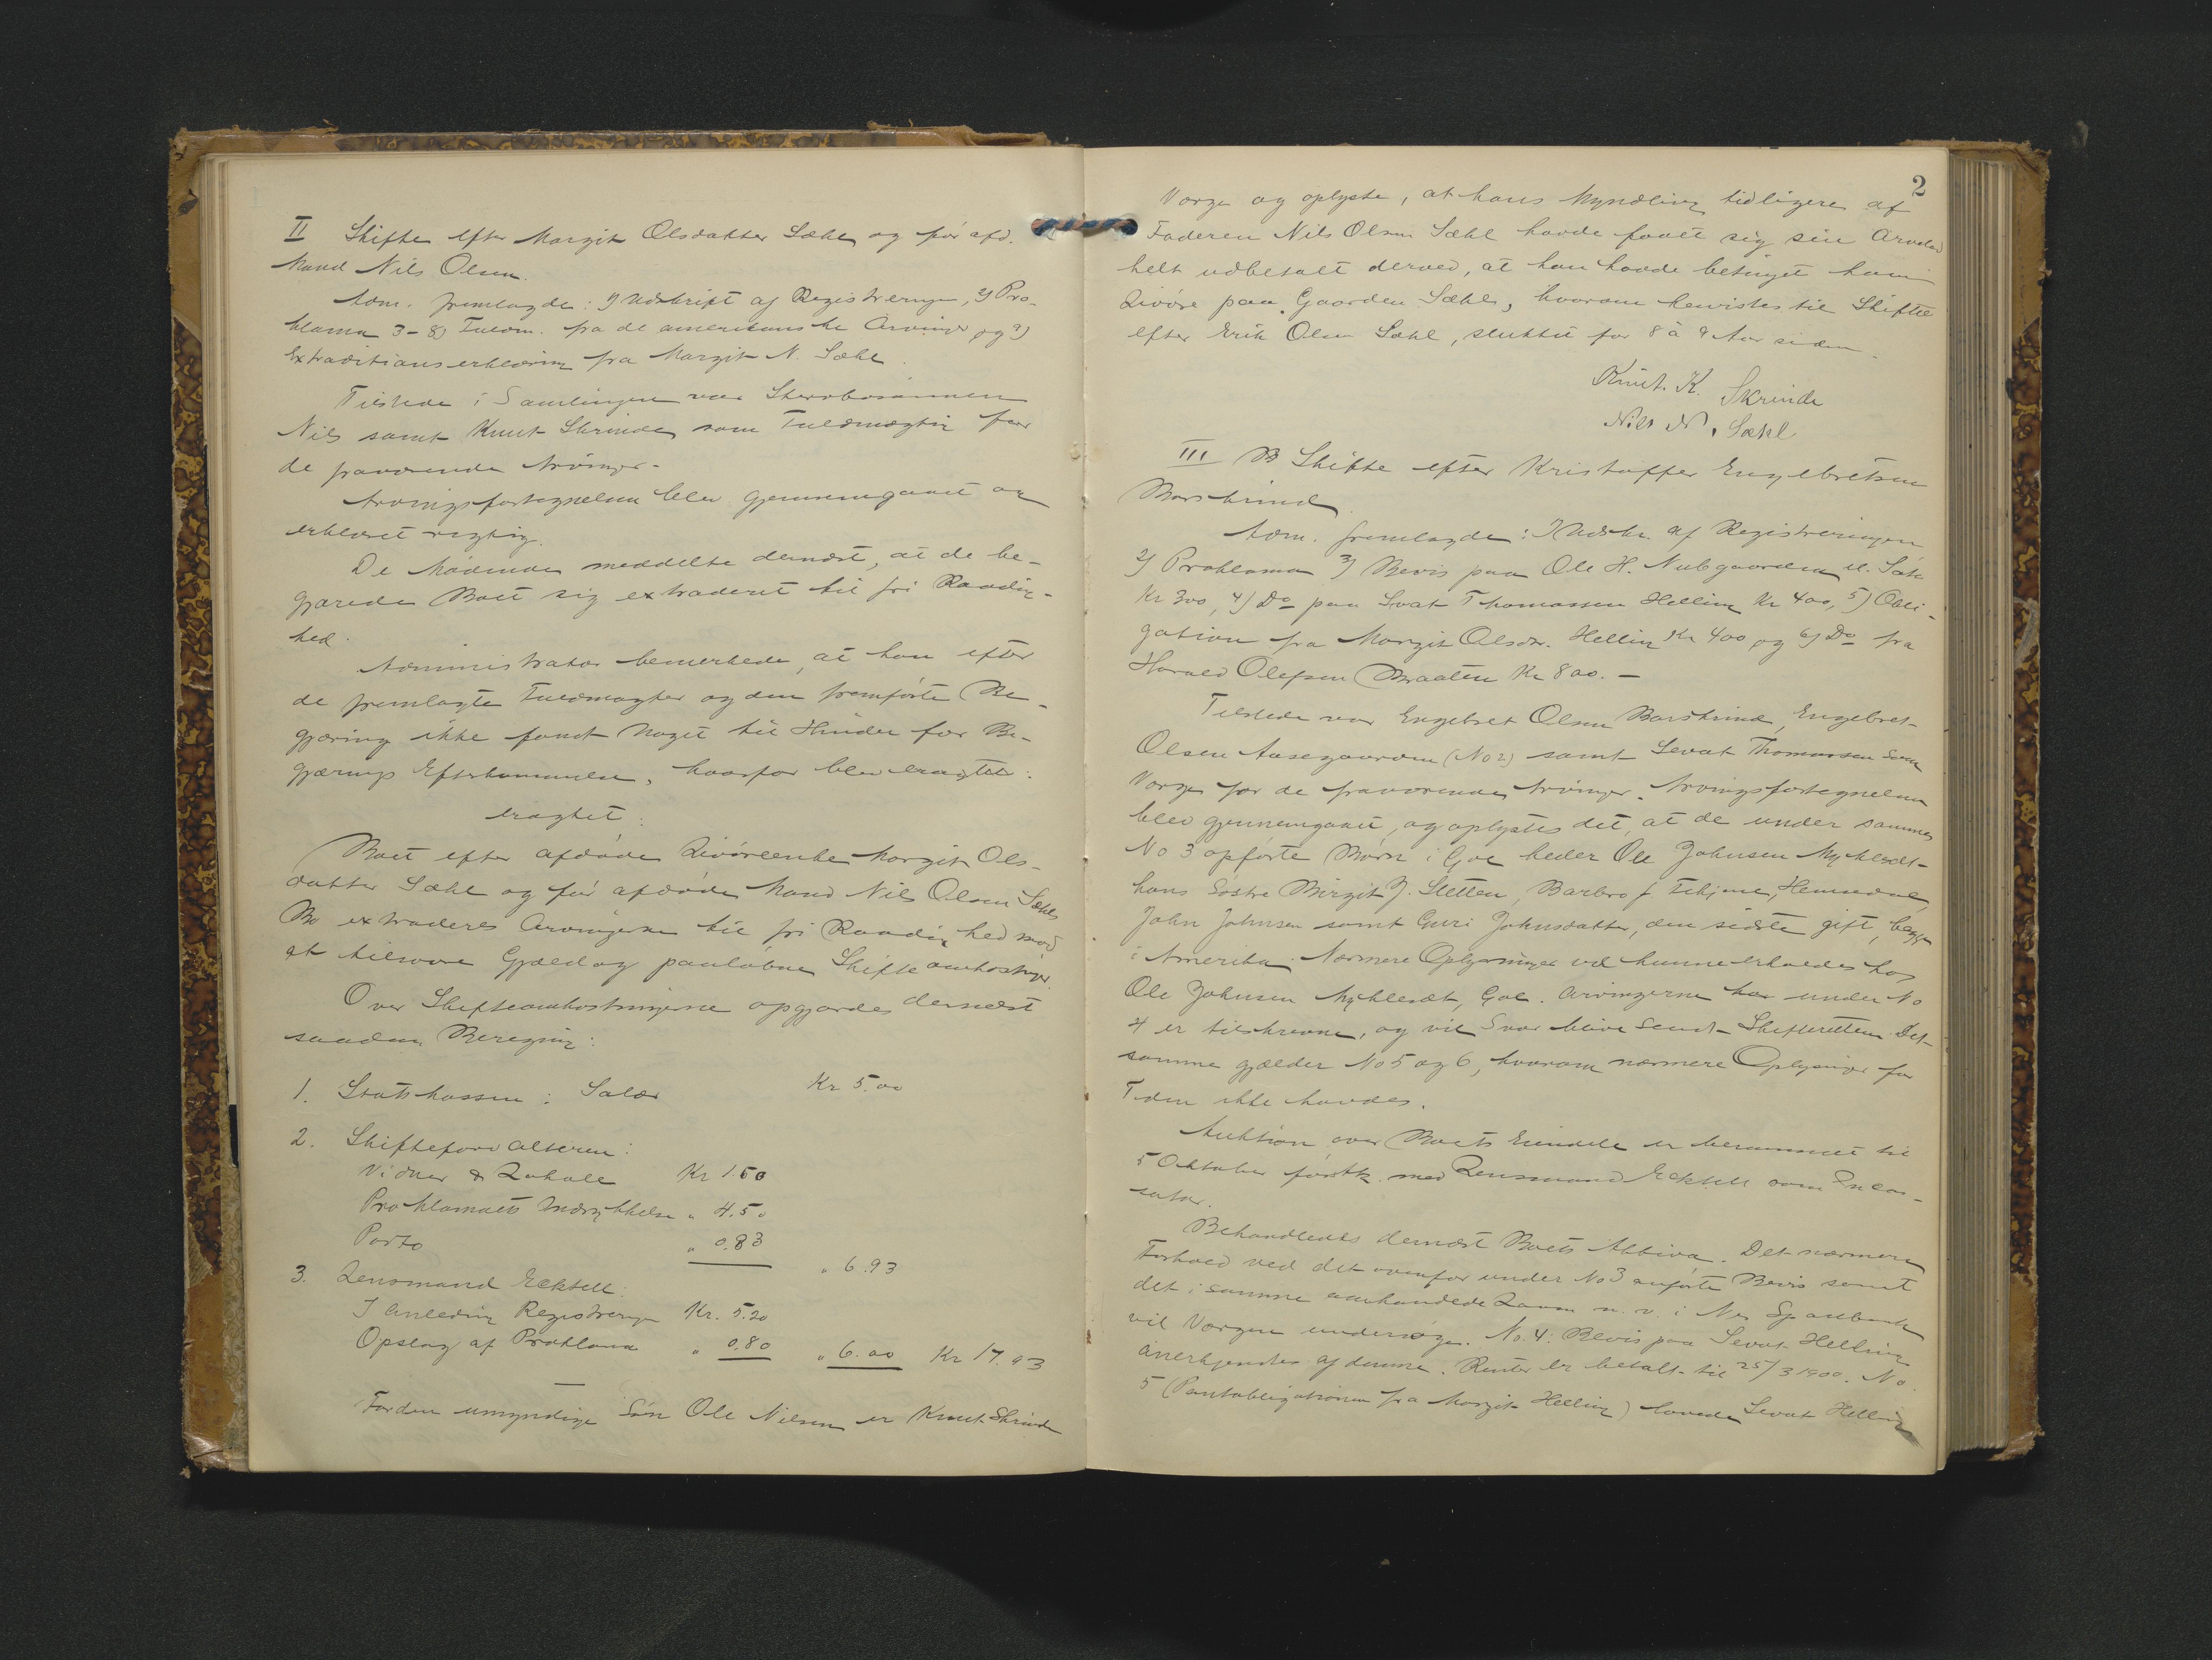 II Skifte efter Margit Olsdatter Sæhl og før afd.
Mand Nils Olsen.
Adm. fremlagde: 1) Udskrift af Registreringen, 2) Pro-
klama 3-8) Fuldm. fra de amerikanske Arvinger og 9)
Extraditionserklæring fra Margit N. Sæhl.
Tilstede i Samlingen var Stervbosønnen
Nils samt Knut Skrinde som Fuldmægtig for
de fraværende Arvinger.
Arvingsfortegnelsen blev gjennemgaaet og
erklæret rigtig.
De Mødende meddelte dernæst, at de be-
gjærede Boet sig extraderet til fri Raadig-
hed.
Administrator bemerkede, at han efter
de fremlagte Fuldmagter og den fremførte Be-
gjæring ikke fandt Noget til Hinder for Be-
gjærings Efterkommelse, hvorfor blev eragtet:
eragtet:
Boet efter afdøde Livøreenke Margit Ols-
datter Sæhl og før afdøde Mand Nils Olsen Sæhls
Bo extraderes Arvingerne til fri Raadighed mod
at tilsvare Gjæld og paaløbne Skifteomkostninger.
Over Skifteomkostningerne opgjordes dernæst
saadan Beregning:
1. Statskassen: Salær Kr 5.00
2. Skifteforvalteren:
Vidner & Lokale Kr 1.60
Proklamaets Indrykkelse " 4.50
Porto " 0.83
" 6.93
3. Lensmand Ecktell:
I Anledning Registrering Kr. 5.20
Opslag af Proklama " 0.80 " 6.00 Kr 17.93
For den umyndige Søn Ole Nilsen er Knut Skrinde
2
Værge og oplyste, at hans Myndling tidligere af
Faderen Nils Olsen Sæhl havde faaet sig sin Arvelod
helt udbetalt derved, at han havde betinget ham
Livøre paa Gaarden Sæhl, hvorom henvistes til Skiftet
efter Erik Olsen Sæhl, sluttet for 8 à 9 Aar siden.
Knut. K. Skrinde
Nils N. Sæhl
III B Skifte efter Kristoffer Engebretsen
Barskrind.
Adm. fremlagde: 1) Udskr. af Registreringen
2) Proklama 3) Bevis paa Ole H. Nubgaarden
Kr 300, 4) Do paa Svat Thomassen Helling Kr 400, 5) Obli-
gation fra Margit Olsdr. Helling Kr 400 og 6) Do fra
Harald Olefsen Braaten Kr 800.-
Tilstede var Engebret Olsen Barskrind, Engebret
Olsen Aasegaarden (No 2) samt Sevat Thomassen som
Værge for de fraværende Arvinger. Arvingsfortegnelsen
blev gjennemgaaet, og oplystes det, at de under sammes
No 3 opførte Børn i Gol heder Ole Johnsen Myklesæt
hans Søstre Birgit J. Sletten, Barbro J. Hemsedal
John Johnsen samt Guri Johnsdatter, den sidste gift, begge
i Amerika. Nærmere Oplysninger vil kunne erholdes hos
Ole Johnsen Myklesæt, Gol. Arvingerne under No
4 er tilskrevne, og vil Svar blive sendt Skifteretten. Det-
samme gjælder No 5 og 6, hvorom nærmere Oplysninger for
Tiden ikke havdes.
Auktion over Boets Eiendele er berammet til
5 Oktober førstk. med Lensmand Ecktell som Inkas-
sator.
Behandledes dernæst Boets Aktiva. Det nærmere
Forhold ved det ovenfor under No 3 anførte Bevis samt
det i samme omhandlede Laan m. v. i Nes Sparebank
vil Værgen undersøge. No. 4: Bevis paa Sevat Helling
anerkjendtes af denne. Renter er betalt til 25/3 1900. No.
5 (Pantobligationen fra Margit Helling) lovede Sevat Helling